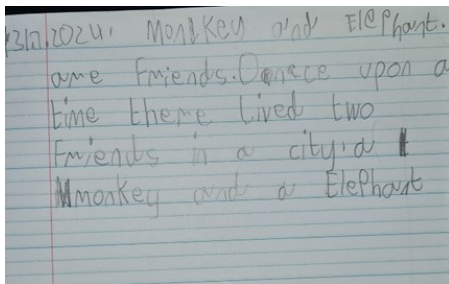 13/2/2024. Monkey and Elephant.
are Friends. Onece upon a
time there lived two
Friends in a city. a
monkey and a Elephant